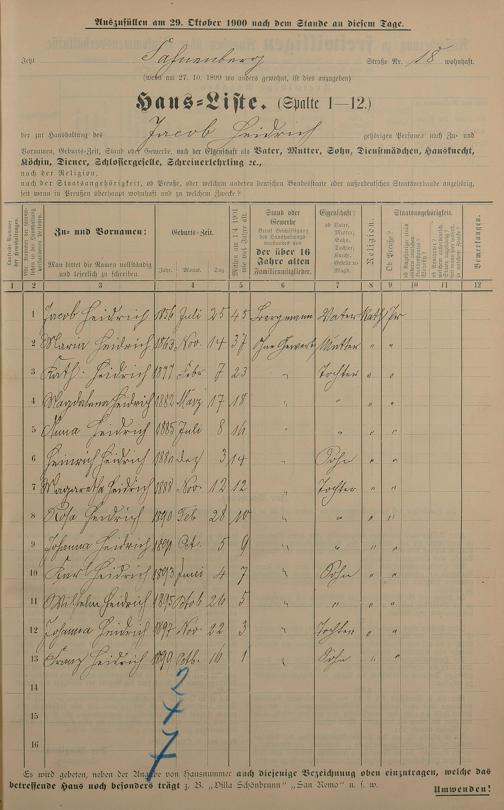 Auszufüllen am 29. Oktober 1900 nach dem Stande an diesem Tage.
Jetzt Straße Nr. 18 wohnhaft.
(wenn am 27. 10. 1899 wo anders gewohnt, ist dies anzugeben)
Haus-Liste. (Spalte 1—12.)
der zur Haushaltung des Jacob Heidrich gehörigen Personen nach Zu- und
Vornamen, Geburts-Zeit, Stand oder Gewerbe, nach der Eigenschaft als Vater, Mutter, Sohn, Dienstmädchen, Hausknecht,
Köchin, Diener, Schlossergeselle, Schreinerlehrling ꝛc.,
nach der Religion,
nach der Staatsangehörigkeit, ob Preuße, oder welchem anderen deutschen Bundesstaate oder außerdeutschen Staatsverbande angehörig,
seit wann in Preußen überhaupt wohnhaft und zu welchem Zwecke?
Zu- und Vornamen:
Man bittet die Namen vollständig und leserlich zu schreiben.
Geburts-Zeit.
Jahr. Monat. Tag
Stand oder Gewerbe
der über 16 Jahre alten Familienmitglieder.
Eigenschaft:
ob Vater, Mutter, Sohn, Tochter, Knecht, Geselle oder Magd.
Religion.
Staatsangehörigkeit.
Ob Preuße?
Bemerkungen.
1 2 3 4 5 6 7 8 9 10 11 12
1 Jacob Heidrich 1856 Juli 25 45 Bergmann Vater Kath Pr
2 Maria Heidrich 1863 Nov. 14 37 Ohne Gewerb Mutter " "
3 Kath: Heidrich 1877 Febr 7 23 " Tochter " "
4 Magdalena Heidrich 1882 März 17 18 " " " "
5 Anna Heidrich 1885 Juli 8 16 " " "
6 Heinrich Heidrich Dez 3 14 " Sohn " "
7 Magaretha Heidrich 1888 Nov. 12 12 " Tochter " "
8 Rosa Heidrich 1890 Feb 28 10 " " " "
9 Johanna Heidrich Oct. 5 9 " " " "
10 Karl Heidrich 1893 Juni 4 7 " Sohn " "
11 Wilhelm Heidrich 1895 Octob 26 5 " " " "
12 Johanna Heidrich 1897 Nov. 22 3 " Tochter " "
13 Franz Heidrich 1899 Octb. 16 1 " Sohn " "
14
15
16
Es wird gebeten, neben der Angabe von Hausnummer auch diejenige Bezeichnung oben einzutragen, welche das
betreffende Haus noch besonders trägt z. B. „Villa Schönbrunn" „San Remo" u. s. w.
Umwenden!